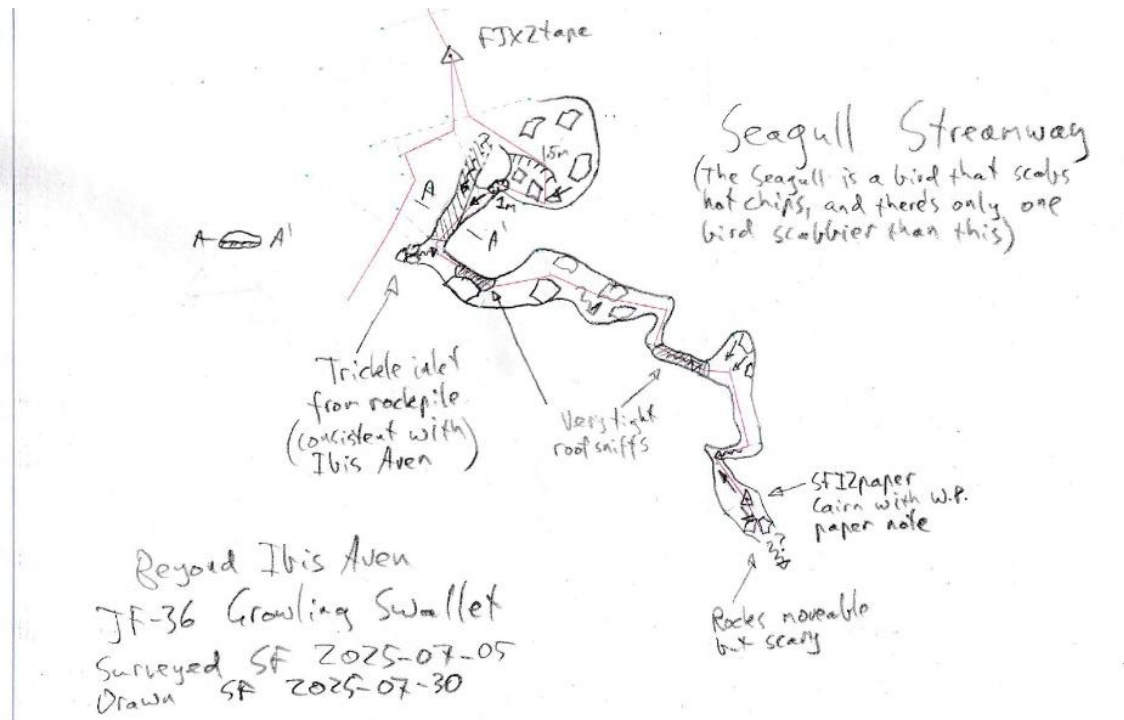 FJX2tape
Seagull Streamway
(The Seagull is a bird that scabs
hot chips, and there's only one
bird scabbier than this)
??
1.5m
A
1m
A'
A A'
Trickle inlet
from rockpile
(consistent with)
Ibis Aven
Very tight
roof sniffs
SFI2paper
Cairn with W.P.
paper note
??
Rocks moveable
but scary
Beyond Ibis Aven
JF-36 Growling Swallet
Surveyed SF 2025-07-05
Drawn SF 2025-07-30